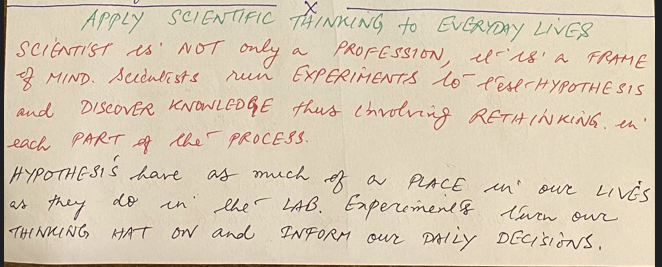 X
APPLY SCIENTIFIC THINKING to EVERYDAY LIVES
SCIENTIST is NOT only a PROFESSION, it is a FRAME
of MIND. Scientists run EXPERIMENTS to test HYPOTHESIS
and DISCOVER KNOWLEDGE thus involving RETHINKING. in
each PART of the PROCESS.
HYPOTHESIS have as much of a PLACE in our LIVES
as they do in the LAB. Experiments turn our
THINKING HAT ON and INFORM our DAILY DECISIONS.